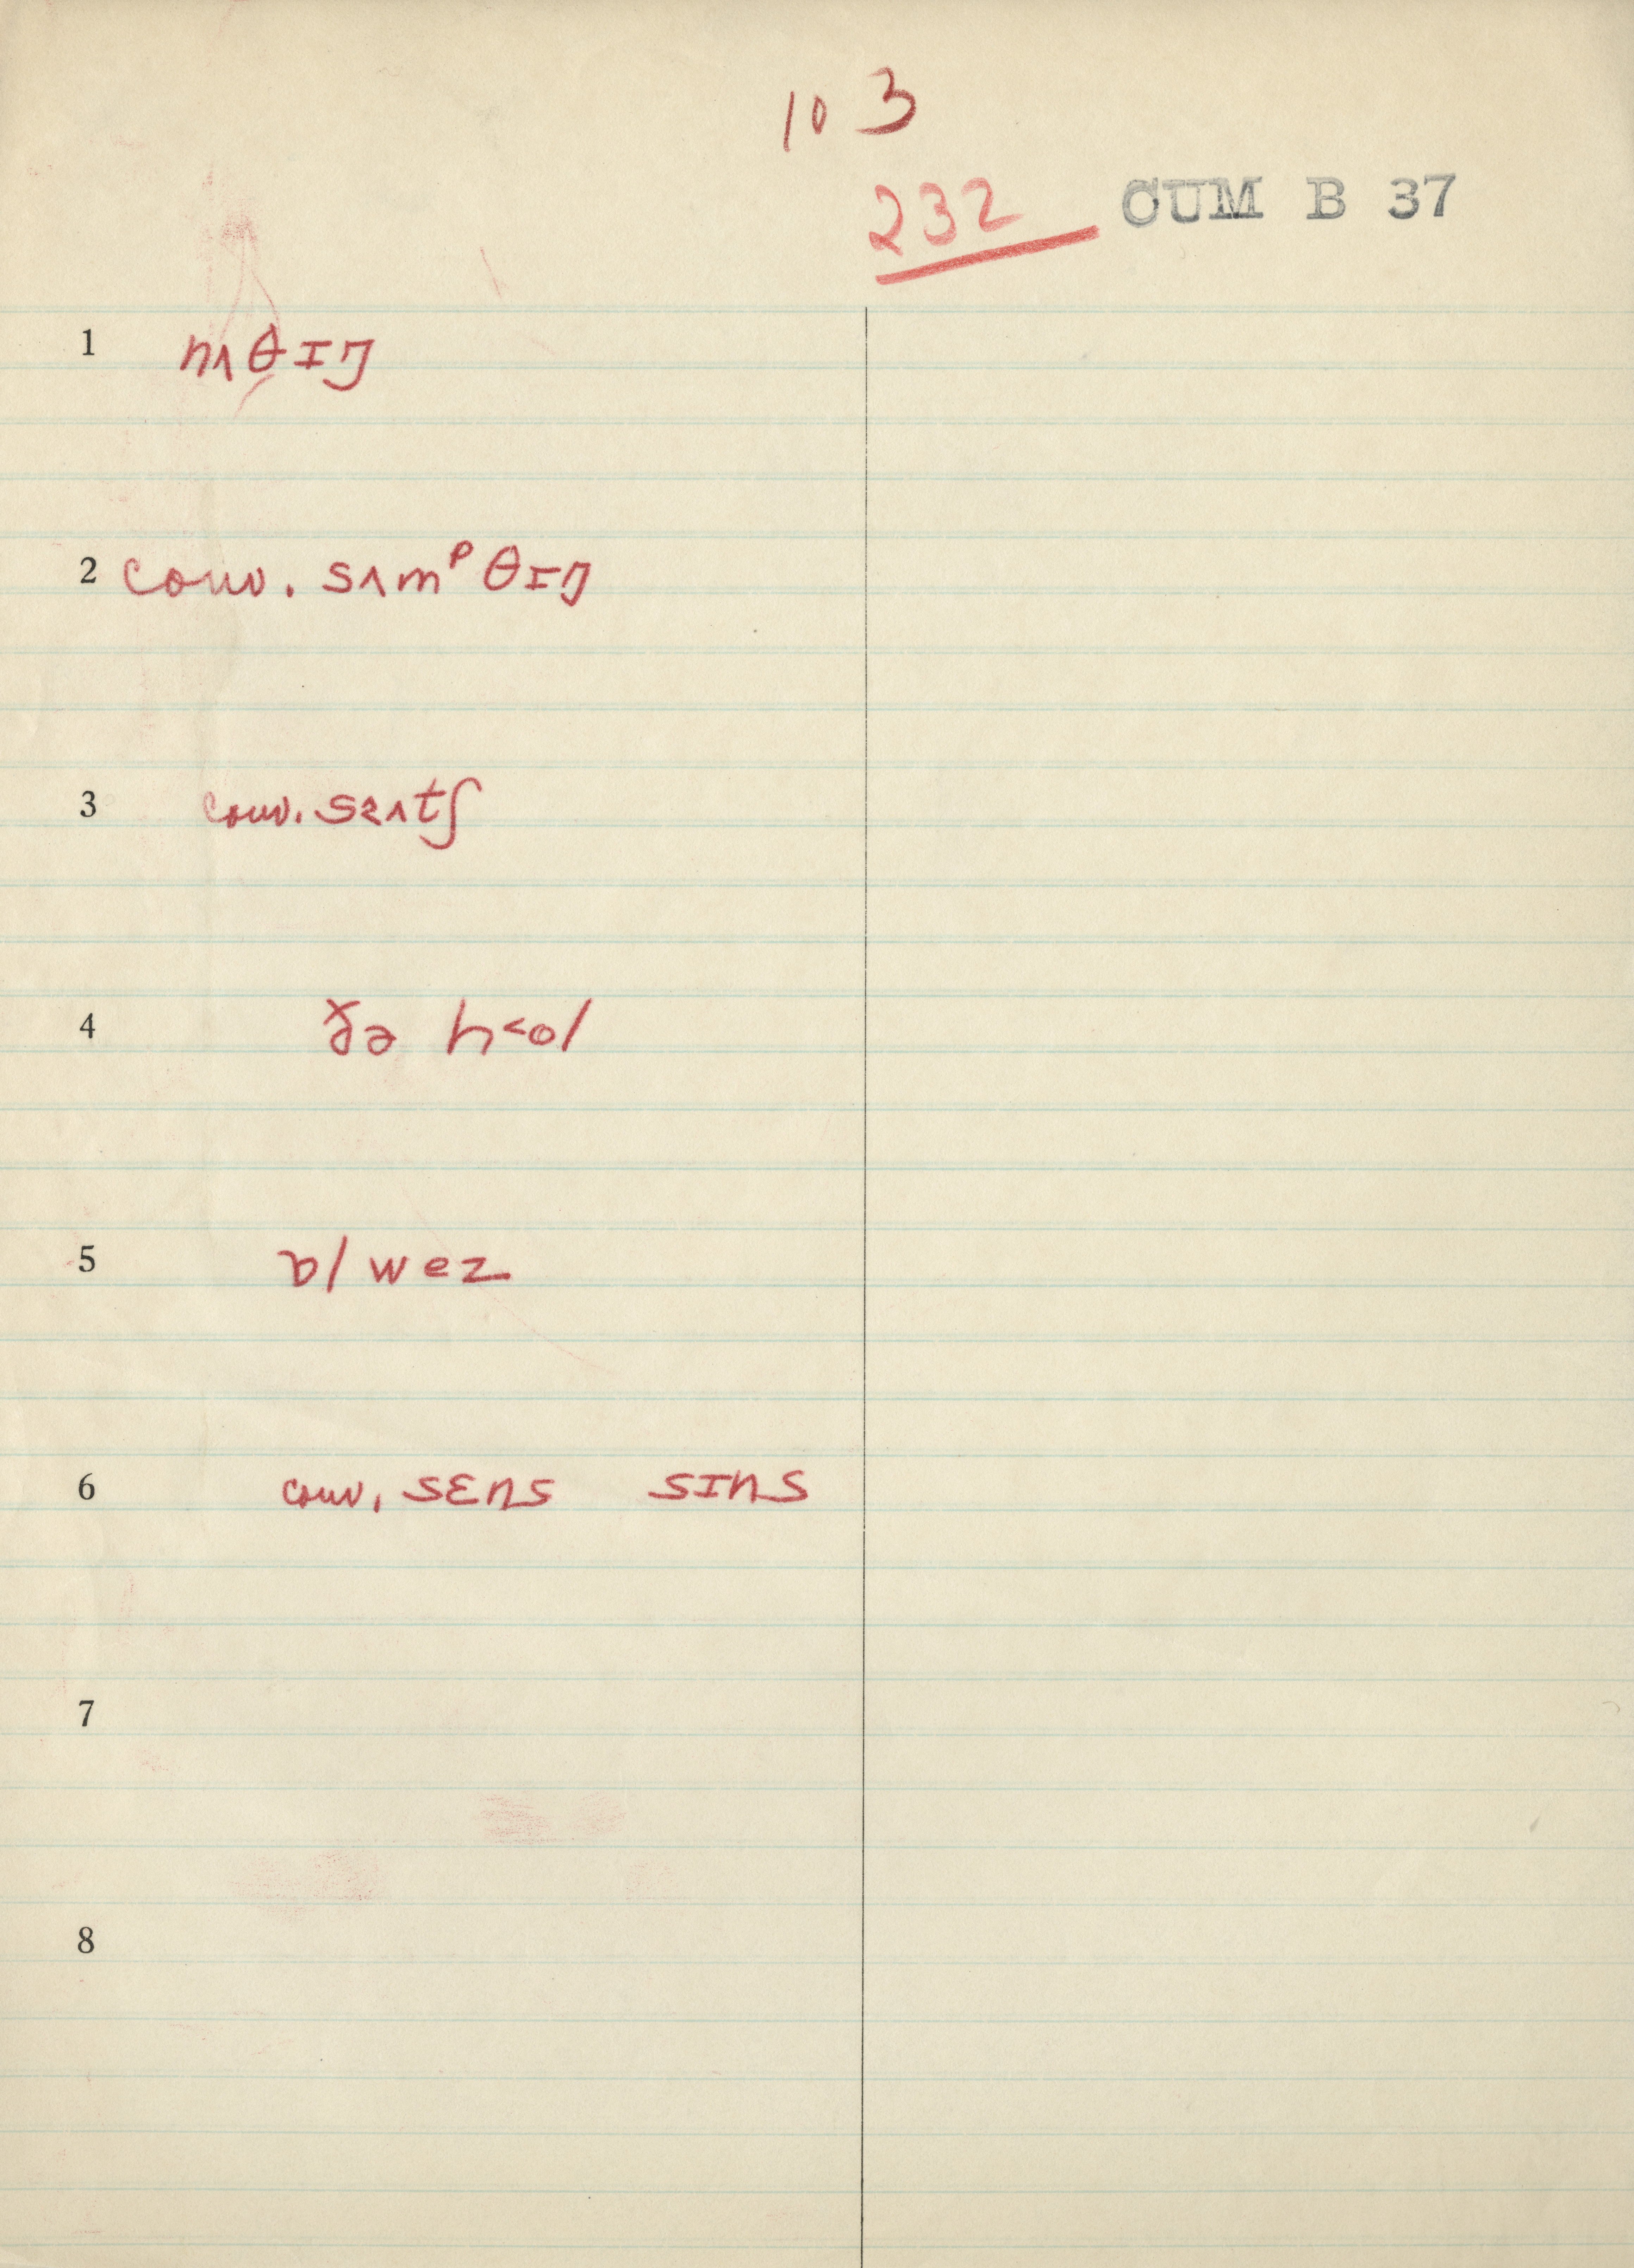 103
232 CUM B 37
1 nʌθɪŋ
2 conv. sʌmᵖθɪŋ
3 conv. sɜʌtʃ
4 ðə h<ol
5 ɒlwez
6 conv. sɛns sɪns
7
8